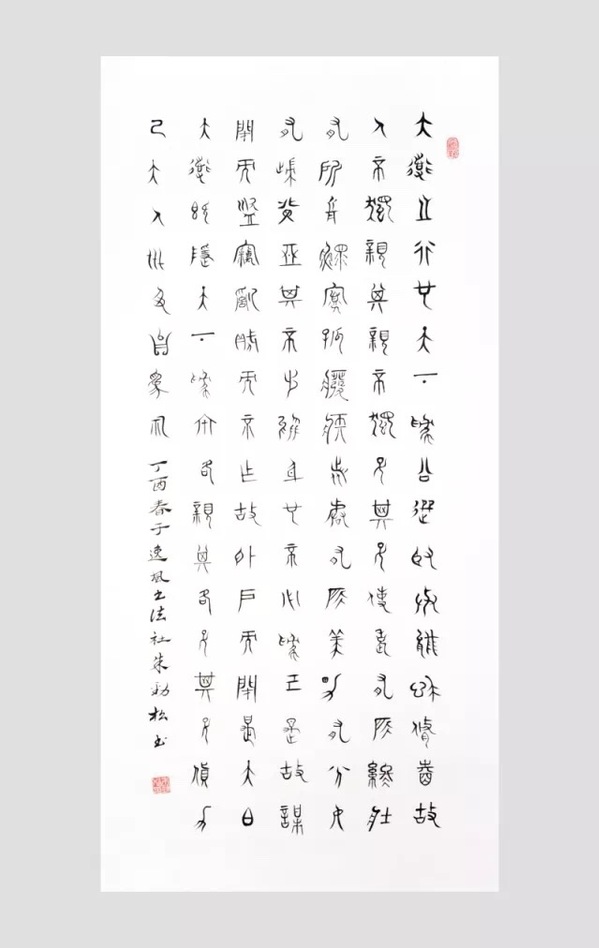 大道之行也天下為公選賢與能講信脩睦故
人不獨親其親不獨子其子使老有所終壯
有所用鰥寡孤廢疾者皆有所養男有分女
有歸貨惡其不出於身也不必為己是故謀
閉而竊亂賊而不作故外戶而閉是大同
大道既隱天下為家各親其各子其子貨力
己大人世及為 丁酉春于逸風書法社朱勁松書